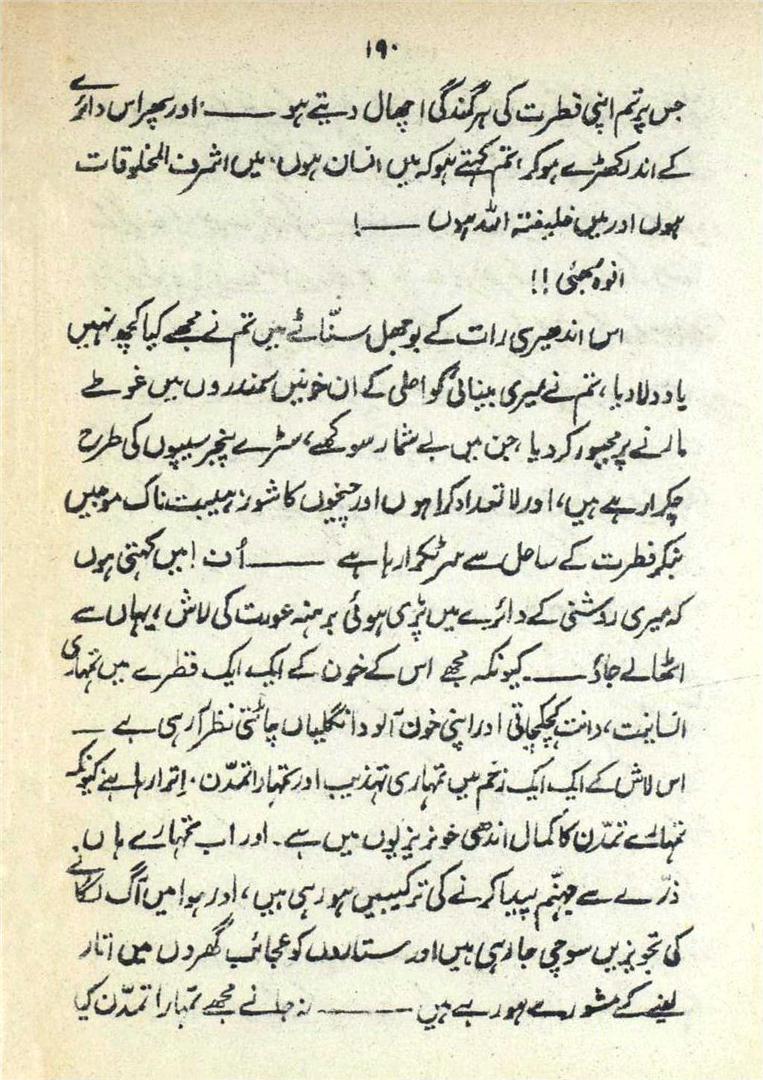 ۱۹۰
جس پر تم اپنی فطرت کی ہر گندگی اچھال دیتے ہو ——— اور پھر اس دائرے
کے اندر کھڑے ہو کر، تم کہتے ہو کہ میں انسان ہوں، میں اشرف المخلوقات
ہوں اور میں خلیفتہ اللہ ہوں ——!
افوہ بھئی !!
اس اندھیری رات کے بوجھل سنّاٹے میں تم نے مجھے کیا کچھ نہیں
یاد دلا دیا، تم نے میری بینائی کو اصلی کے ان خونیں سمندروں میں غوطے
مارنے پر مجبور کر دیا، جن میں بے شمار سوکھے، سڑے پنجر سیپوں کی طرح
چکرا رہے ہیں، اور لاتعداد کراہوں اور چیخوں کا شور ہیبت ناک موجیں
بنکر فطرت کے ساحل سے سر ٹکرا رہا ہے ——— اُف! میں کہتی ہوں
کہ میری روشنی کے دائرے میں پڑی ہوئی برہنہ عورت کی لاش، یہاں سے
اٹھالے جاؤ ——۔ کیونکہ مجھے اس کے خون کے ایک ایک قطرے میں تمہاری
انسانیت، دانت کچکچاتی اور اپنی خون آلود انگلیاں چاٹتی نظر آ رہی ہے —
اس لاش کے ایک ایک زخم میں تمہاری تہذیب اور تمہارا تمدّن، اِترا رہا ہے کیونکہ
تمہارے تمدّن کا کمال اندھی خونریزیوں میں ہے۔ اور اب تمہارے ہاں
ذرّے سے جہنّم پیدا کرنے کی ترکیبیں ہو رہی ہیں، اور ہوا میں آگ لگانے
کی تجویزیں سوچی جا رہی ہیں اور ستاروں کو عجائب گھروں میں اتار
لینے کے مشورے ہو رہے ہیں ——— نہ جانے مجھے تمہارا تمدّن کیا